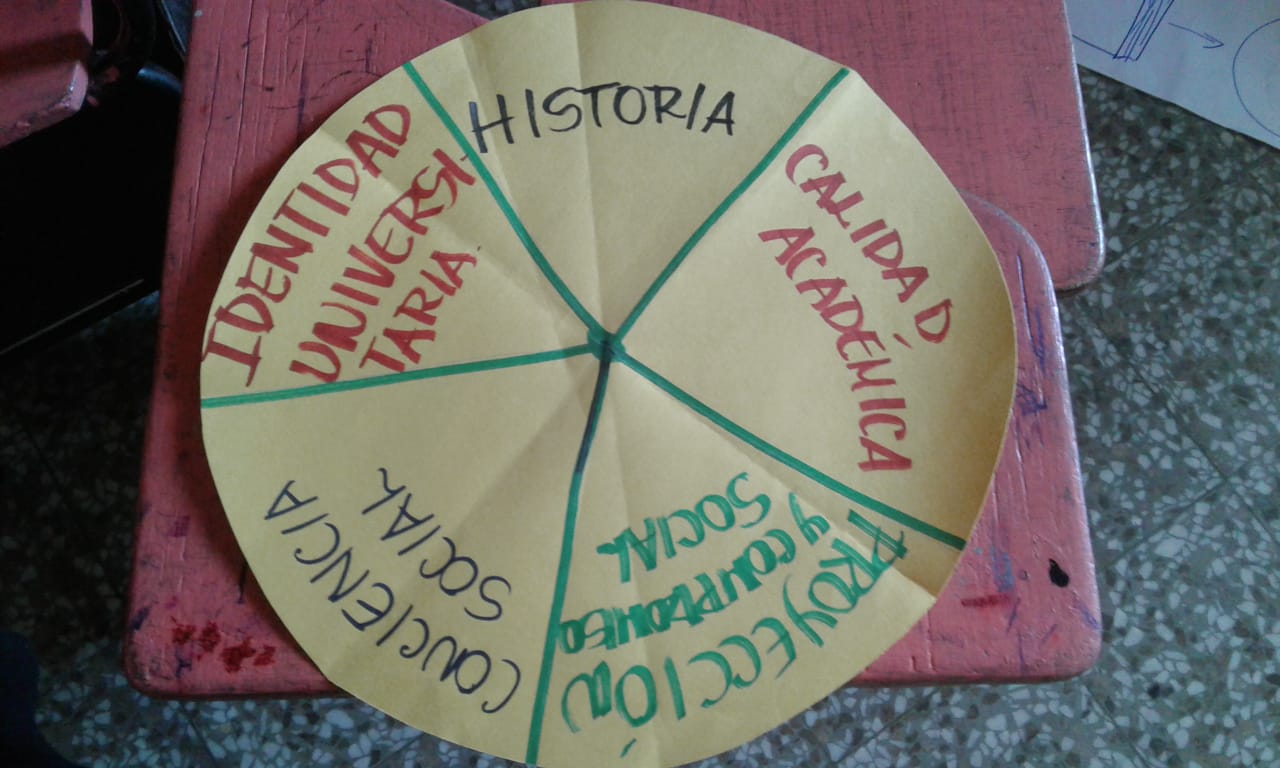 HISTORIA
CALIDAD
ACADÉMICA
PROYECCIÓN
y COMPROMISO
SOCIAL
CONCIENCIA
SOCIAL
IDENTIDAD
UNIVERSI-
TARIA.